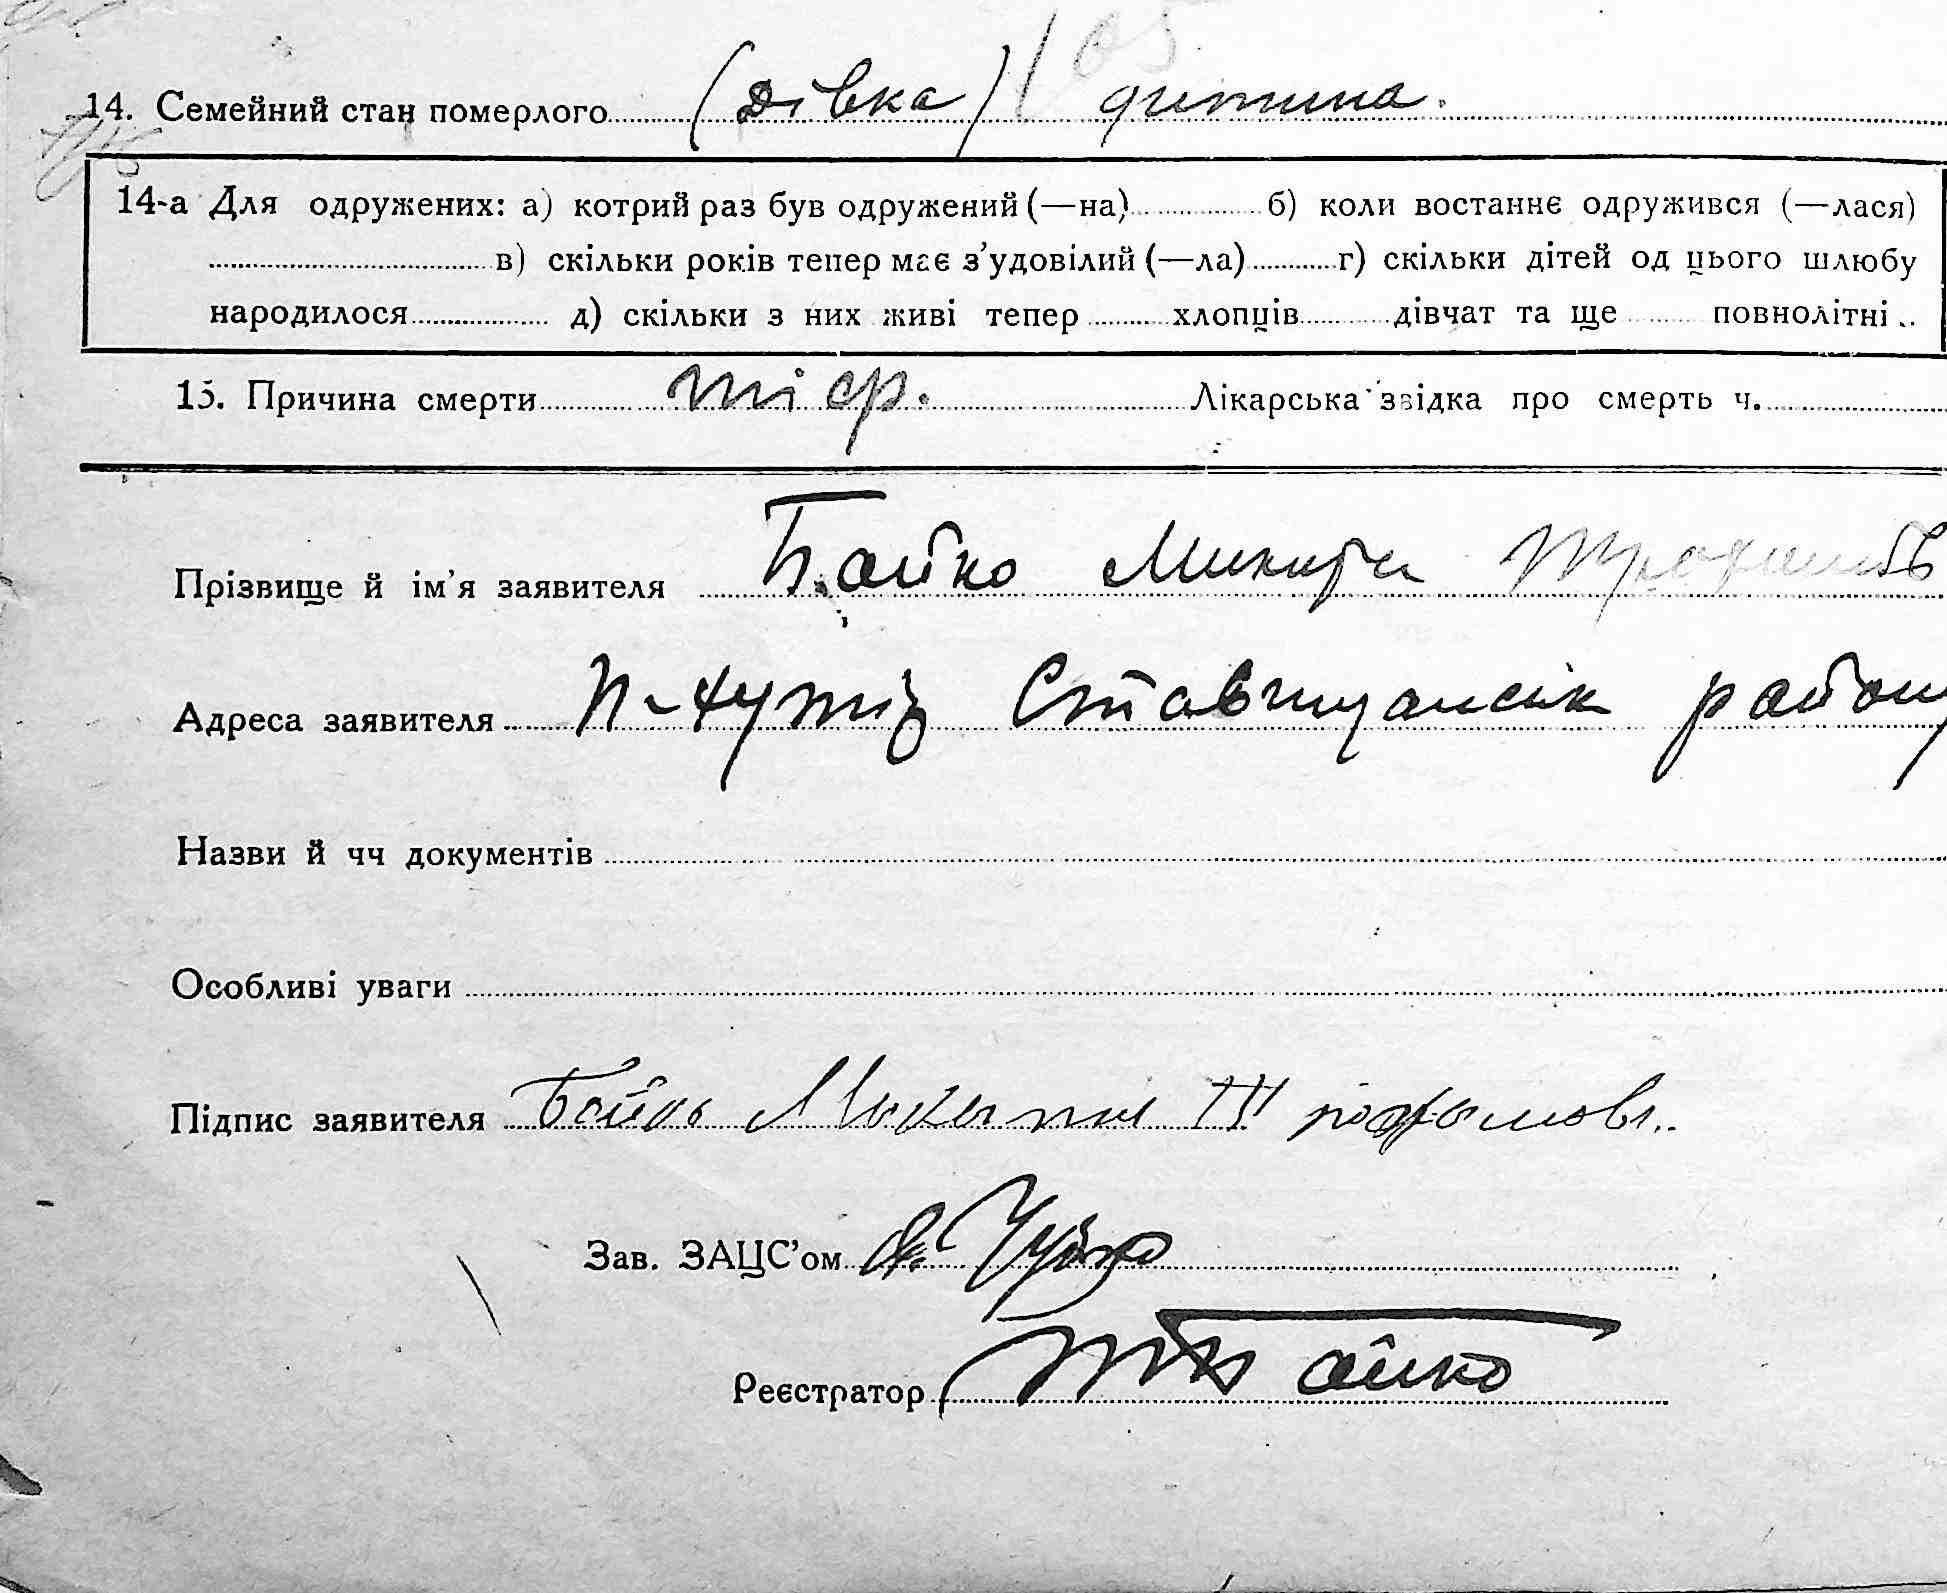 14. Семейний стан померлого (дівка) дитина.
14-а Для одружених: а) котрий раз був одружений (—на) б) коли востаннє одружився (—лася)
в) скільки років тепер має з’удовілий (—ла) г) скільки дітей од цього шлюбу
народилося д) скільки з них живі тепер хлопців дівчат та ще повнолітні
15. Причина смерти Лікарська звідка про смерть ч.
Прізвище й ім’я заявителя Бойко Микита
Адреса заявителя Ставищанськ району
Назви й чч документів
Особливі уваги
Підпис заявителя Бойко Мыкыта
Зав. ЗАЦС’ом
Реєстратор Бойко